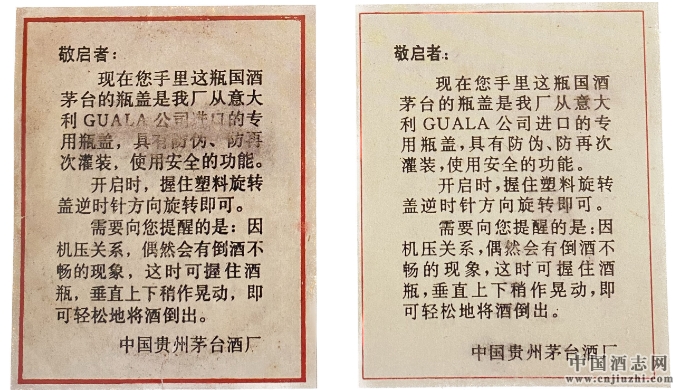 敬启者:
现在您手里这瓶国酒
茅台的瓶盖是我厂从意大
利GUALA公司进口的专
用瓶盖,具有防伪、防再
次灌装,使用安全的功能。
开启时,握住塑料旋转
盖逆时针方向旋转即可。
需要向您提醒的是:因
机压关系,偶然会有倒酒不
畅的现象,这时可握住酒
瓶,垂直上下稍作晃动,即
可轻松地将酒倒出。
中国贵州茅台酒厂
敬启者:
现在您手里这瓶国酒
茅台的瓶盖是我厂从意大
利GUALA公司进口的专
用瓶盖,具有防伪、防再次
灌装,使用安全的功能。
开启时,握住塑料旋转
盖逆时针方向旋转即可。
需要向您提醒的是:因
机压关系,偶然会有倒酒不
畅的现象,这时可握住酒
瓶,垂直上下稍作晃动,即
可轻松地将酒倒出。
中国贵州茅台酒厂
中国酒志网
www.cnjiuzhi.com